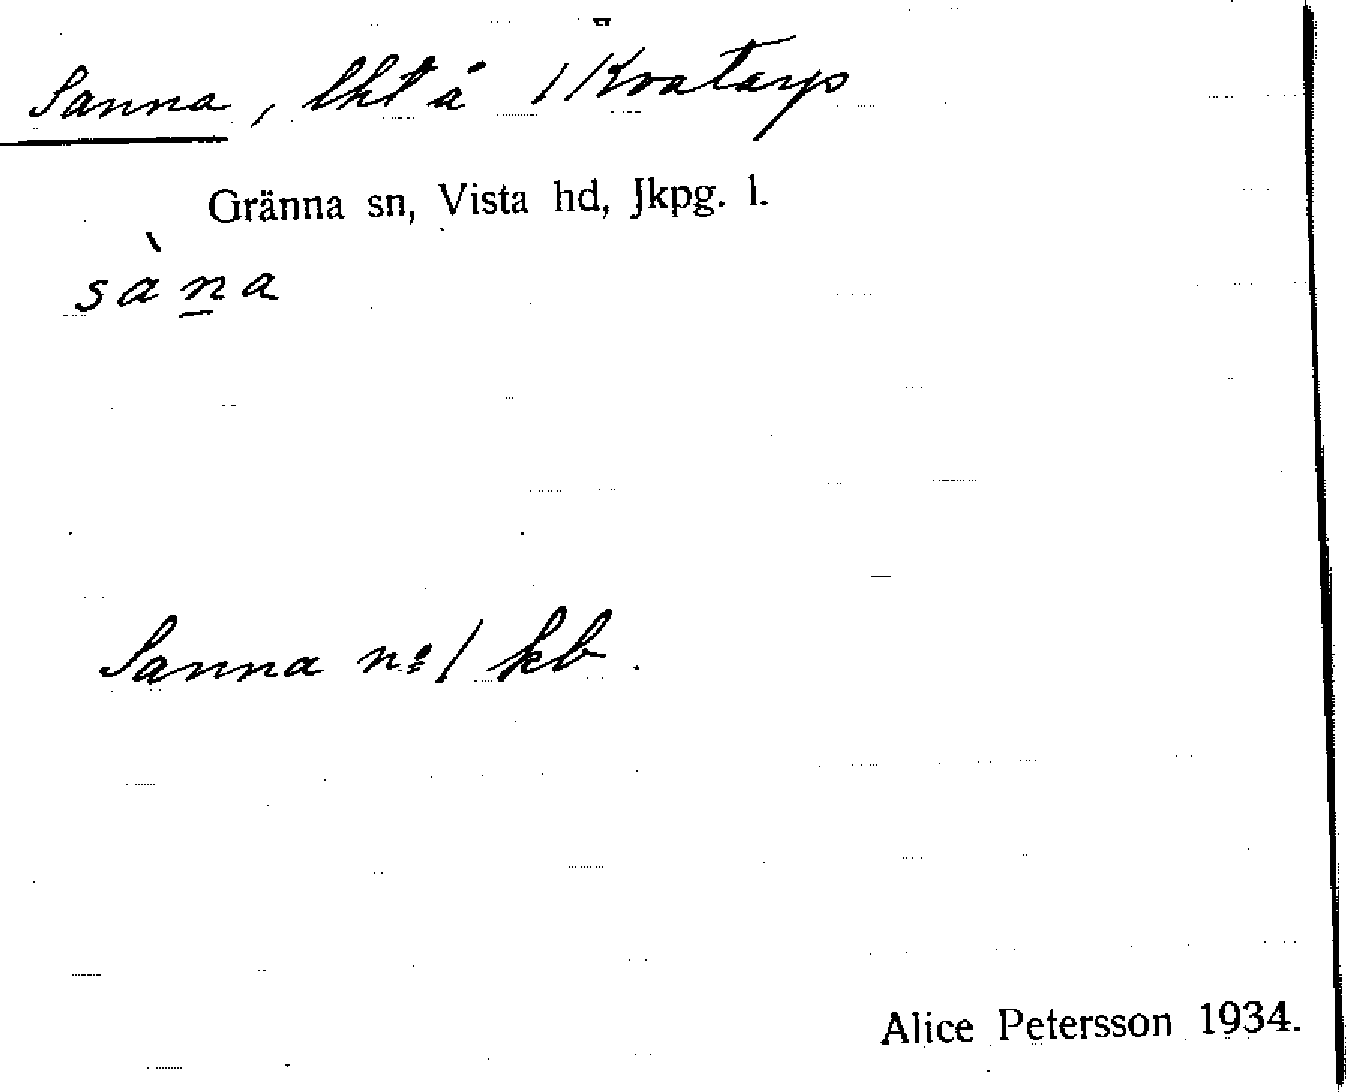 Sanna, lht å 1 Kvatarp
Gränna sn, Vista hd, Jkpg. l.
sàn̲a
Sanna nº 1 kb.
Alice Petersson 1934.